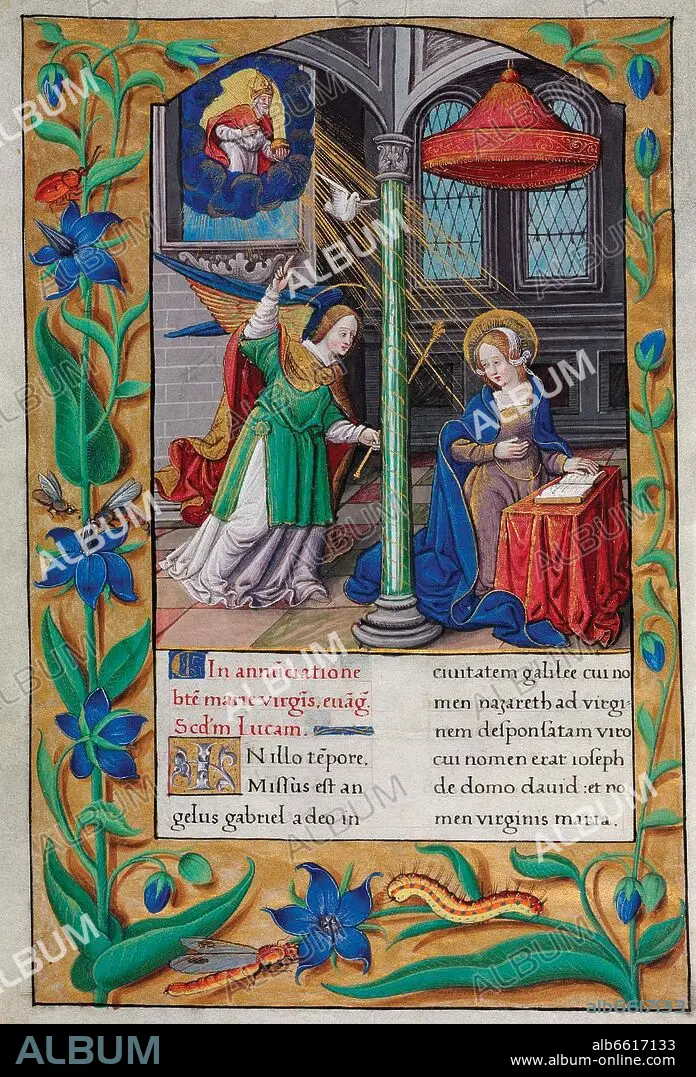 In annũciatione
btẽ marie virgĩs, euãg̃.
Scd̃m Lucam.
IN illo tẽpore.
Missus est an
gelus gabriel a deo in
ciuitatem galilee cui no
men nazareth ad virgi-
nem desponsatam viro
cui nomen erat ioseph
de domo dauid : et no
men virginis maria.
ALBUM
alb6617133
ALBUM
alb6617133
www.album-online.com